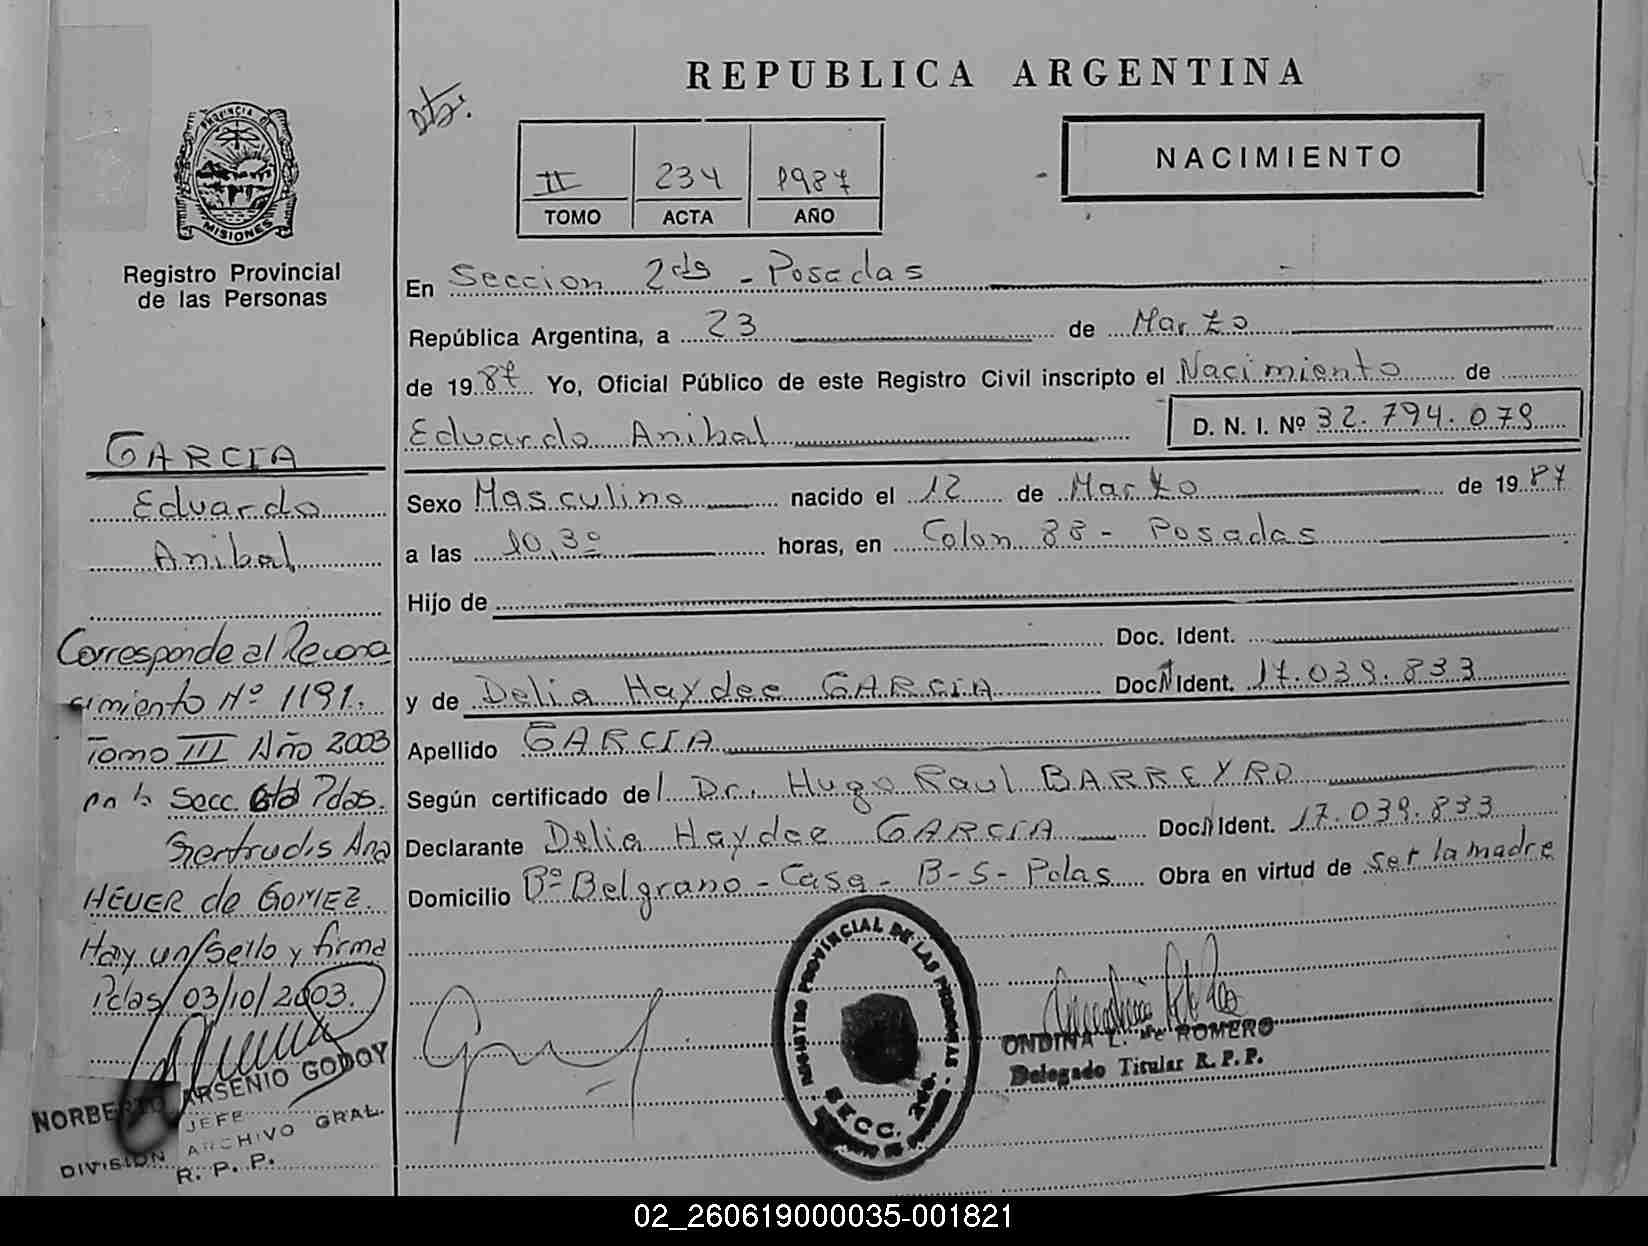 REPUBLICA ARGENTINA
NACIMIENTO
II 234 1987
TOMO ACTA AÑO
PROVINCIA DE
MISIONES
Registro Provincial
de las Personas
GARCIA
Eduardo
Anibal
Corresponde al Recono
cimiento Nº 1191.
Tomo III Año 2003
en la Secc. 6ta Pdas.
Gertrudis Ana
HEUER de GOMEZ.
Hay un/sello y firma
Pdas/03/10/2003.
NORBERTO ARSENIO GODOY
JEFE
DIVISION ARCHIVO GRAL.
R. P. P.
En Seccion 2da - Posadas
República Argentina, a 23 de Marzo
de 1987 Yo, Oficial Público de este Registro Civil inscripto el Nacimiento de
Eduardo Anibal D. N. I. Nº 32.794.079
Sexo Masculino nacido el 12 de Marzo de 1987
a las 10,30 horas, en Colon 88 - Posadas
Hijo de
Doc. Ident.
y de Delia Haydee GARCIA Doc N Ident. 17.039.833
Apellido GARCIA
Según certificado del Dr. Hugo Raul BARREYRO
Declarante Delia Haydee GARCIA Doc N Ident. 17.039.833
Domicilio Bº Belgrano - Casa - B-5 - Pdas Obra en virtud de ser la madre
REGISTRO PROVINCIAL DE LAS PERSONAS
SECC. 2da.
ONDINA L. de ROMERO
Delegado Titular R. P. P.
02_260619000035-001821